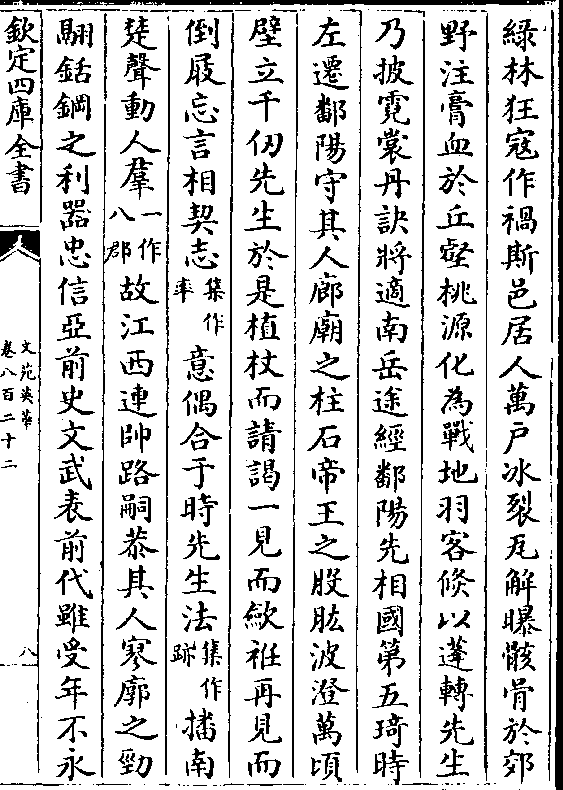 綠林狂寇作禍斯邑居人萬戶冰裂瓦解曝骸骨於郊
野注膏血於丘壑桃源化為戰地羽客倐以蓬轉先生
乃披霓裳丹訣將適南岳途經鄱陽先相國第五琦時
左遷鄱陽守其人廊廟之柱石帝王之股肱波澄萬頃
壁立千仞先生於是植杖而請謁一見而歛袵再見而
倒屐忘言相契志集作率意偶合于時先生法集作跡播南
楚聲動人羣一作八郡故江西連帥路嗣恭其人寥廓之勁
翮銛鋼之利器忠信亞前史文武表前代雖受年不永
欽定四庫全書
文苑英華
卷八百二十二
八